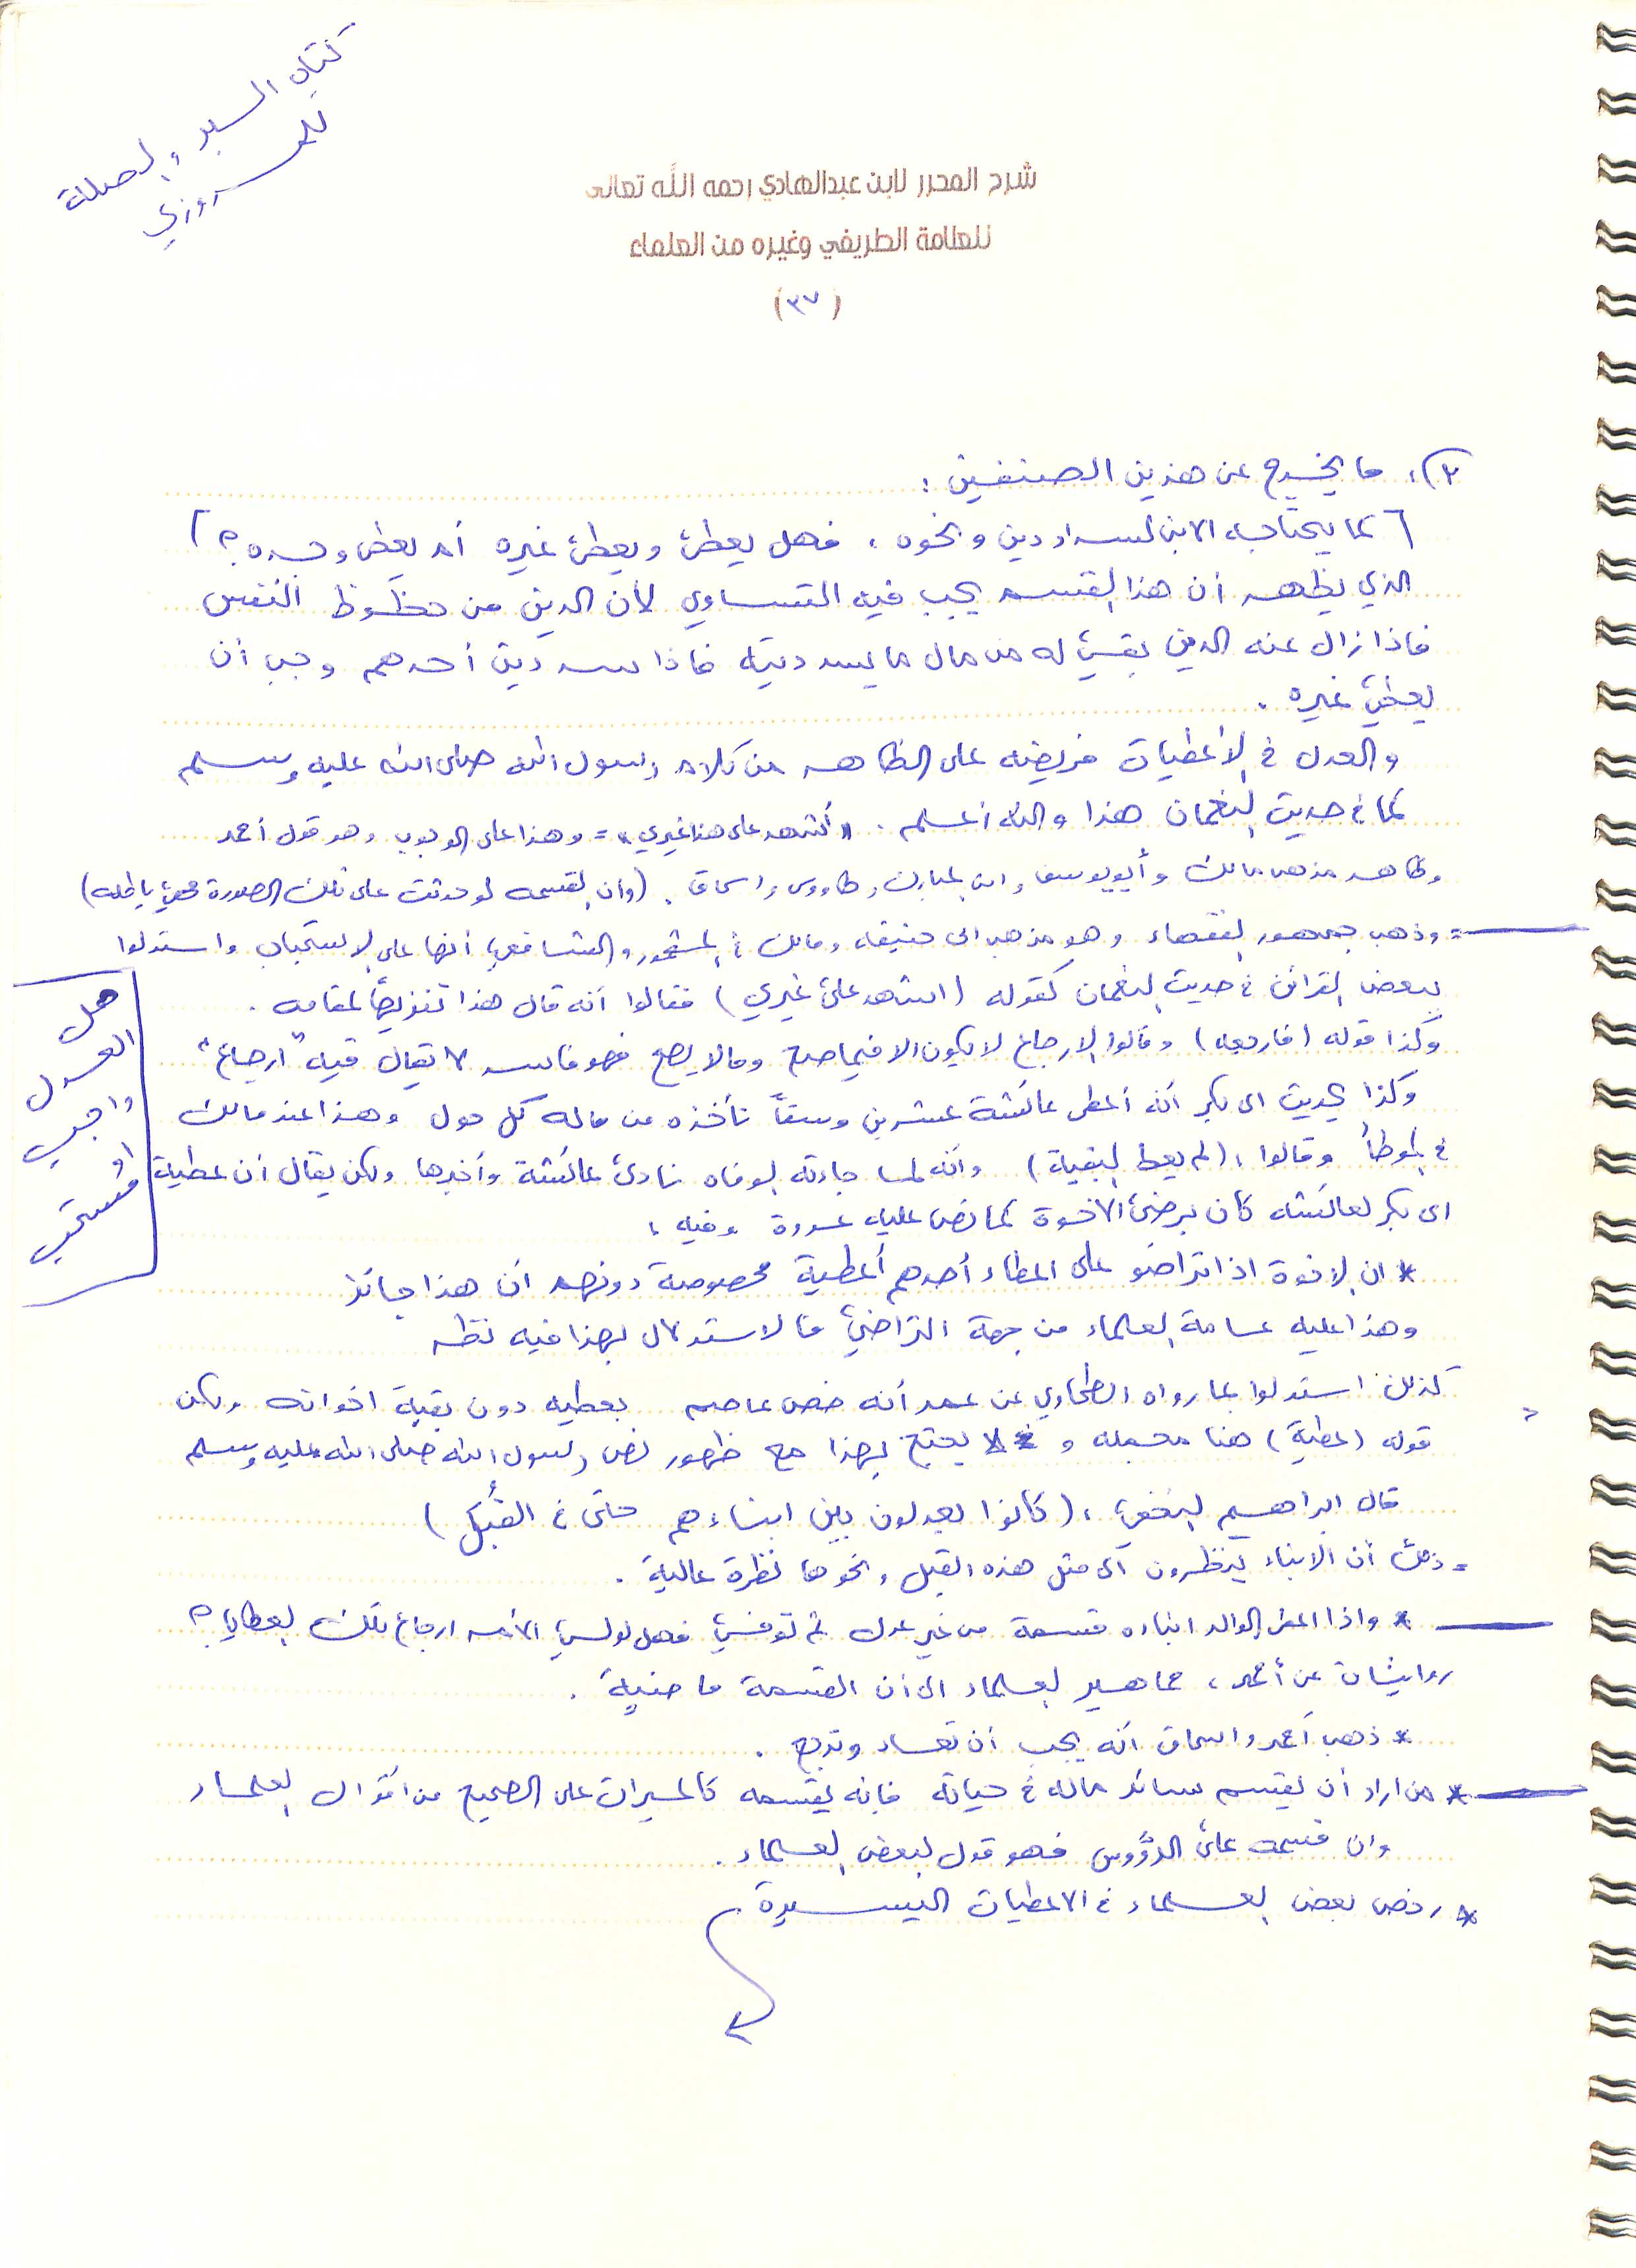 كتاب السير والصلة
للمروزي
شرح المحرر لابن عبدالهادي رحمه الله تعالى
للعلامة الطريفي وغيره من العلماء
(٣٧)
٣)، ما يخرج عن هذين الصنفين :
[ كما يحتاجه الابن لسداد دين ونحوه ، فهل يعطى ويعطى غيره أم يعطى وحده ؟ ]
الذي يظهر أن هذا القسم يجب فيه التساوي لأن الدين من حظوظ النفس
فاذا زال عنه الدين بقي له من مال ما يسد دينه فاذا سد دين أحدهم وجب أن
يعطي غيره .
والعدل في الأعطيات فريضه على الظاهر من كلام رسول الله صلى الله عليه وسلم
كما في حديث النعمان هذا والله أعلم . " أشهد على هذا غيري " = وهذا على الوجوب وهو قول أحمد
وظاهر مذهب مالك وأبويوسف وابن المبارك وطاووس واسحاق . (وان القسمه لو حدثت على تلك الصورة فهي باطله)
= وذهب جمهور الفقهاء وهو مذهب ابي حنيفه ومالك في المشهور والشافعي أنها على الاستحباب واستدلوا
ببعض القرائن في حديث النعمان كقوله (اشهد على غيري) فقالوا أنه قال هذا تنزيهاً لمقامه .
وكذا قوله (فارجعه) وقالوا الارجاع لا يكون الا فيما صح وما لا يصح فهو فاسد لا يقال فيه "ارجاع"
وكذا بحديث ابي بكر أنه أعطى عائشة عشرين وسقاً تأخذه من ماله كل حول وهذا عند مالك
في الموطأ وقالوا ، (لم يعط البقية) وأنه لما جاءته الوفاه نادى عائشة وأخبرها ولكن يقال أن عطية
ابي بكر لعائشه كان برضى الاخوة كما نص عليه عروة وفيه :
* ان الاخوة اذا تراضو على اعطاء أحدهم أعطية مخصوصة دونهم أن هذا جائز
وهذا عليه عامة العلماء من جهة التراضي فالاستدلال بهذا فيه نظر
كذلك استدلوا بما رواه الطحاوي عن عمر أنه خص عاصم بعطيه دون بقية اخوانه ولكن
قوله (عطية) هنا مجمله و لا يحتج بهذا مع ظهور نص رسول الله صلى الله عليه وسلم
قال ابراهيم النخعي ، (كانوا يعدلون بين ابناءهم حتى في القُبَل)
= ذلك أن الابناء ينظرون الى مثل هذه القبل ونحوها نظرة عالية .
* واذا اعطى الوالد ابناءه قسمة من غير عدل ثم توفي فهل لولي الأمر ارجاع تلك العطايا ؟
روايتان عن أحمد ، جماهير العلماء الى أن القسمة ماضية .
* ذهب أحمد واسحاق أنه يجب أن تعاد وترجع .
* من اراد أن يقسم سائر ماله في حياته فانه يقسمه كالميراث على الصحيح من اقوال العلماء
وان قسمه على الرؤوس فهو قول لبعض العلماء .
* رخص بعض العلماء في الاعطيات اليسيرة
هل
العدل
واجب
او
مستحب